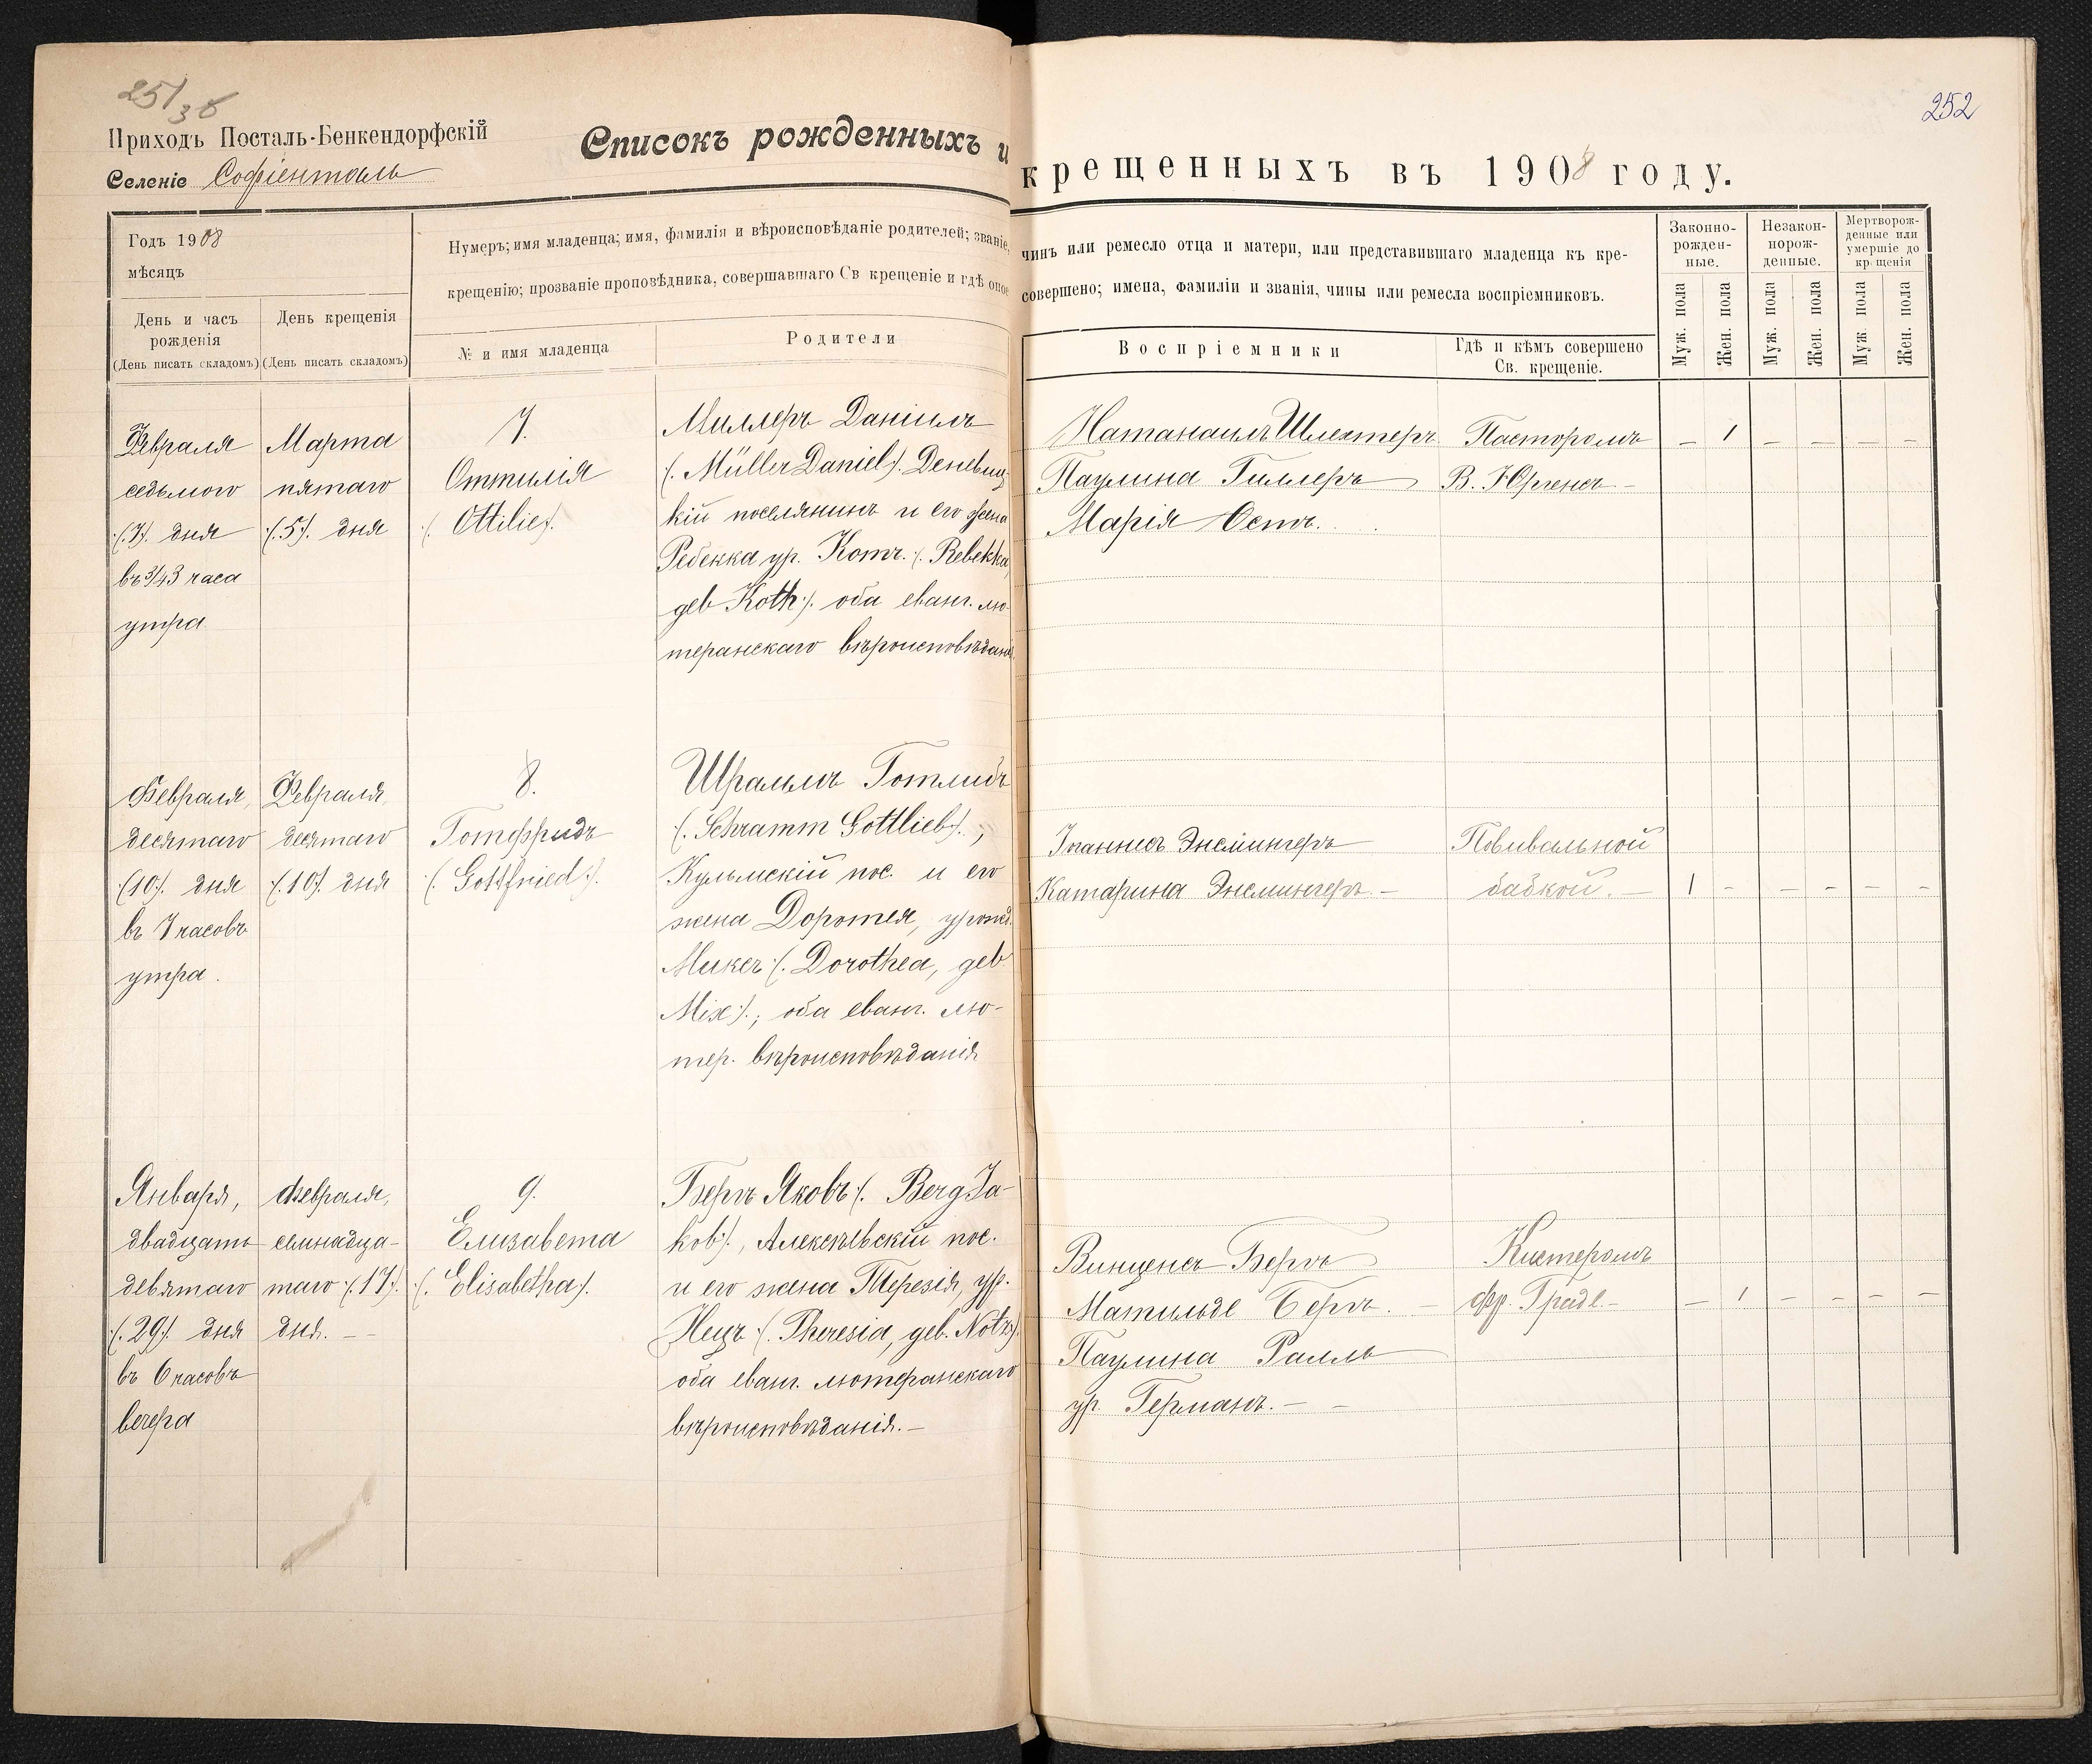 251 зб
252
Приходъ Посталь-Бенкендорфскій
Селеніе Софіенталь
Списокъ рожденныхъ и крещенныхъ въ 1908 году.
Годъ 1908
мѣсяцъ
День и часъ рожденія
(День писать складомъ)
День крещенія
(День писать складомъ)
Нумеръ; имя младенца; имя, фамилія и вѣроисповѣданіе родителей; званіе, чинъ или ремесло отца и матери, или представившаго младенца къ кре-
крещенію; прозваніе проповѣдника, совершавшаго Св крещеніе и гдѣ оное совершено; имена, фамиліи и званія, чины или ремесла воспріемниковъ.
№ и имя младенца
Родители
Воспріемники
Гдѣ и кѣмъ совершено
Св. крещеніе.
Законно-
рожден-
ные.
Незакон-
норож-
денные.
Мертворож-
денные или
умершіе до
крещенія
Муж. пола
Жен. пола
Муж. пола
Жен. пола
Муж. пола
Жен. пола
Февраля
седьмого
(.7). дня
въ 3/43 часа
утра
Марта
пятаго
(.5). дня
7.
Оттилія
(. Ottilie).
Миллеръ Даніилъ
(. Müller Daniel). Деневиц-
кій поселянинъ и его жена
Ребекка ур. Котъ. (. Rebekka,
geb Koth). оба еванг. лю-
теранскаго вѣроисповѣданія
Натанаилъ Шлехтеръ
Паулина Гиллеръ
Марія Остъ.
Пасторомъ
В. Юргенсъ –
– 1 – – – –
Февраля,
десятаго
(10). дня
въ 7 часовъ
утра.
Февраля,
десятаго
(.10). дня
8.
Готфридъ
(. Gottfried).
Шраммъ Готлибъ
(. Schramm Gottlieb).,
Кульмскій пос. и его
жена Доротея, урожд.
Миксъ (. Dorothea, geb
Mix).; оба еванг. лю-
тер. вѣроисповѣданія
Іоаннесъ Энсмингеръ
Катарина Энсмингеръ. –
Повивальной
бабкой. –
1 – – – – –
Января,
двадцать
девятаго
(.29). дня
въ 6 часовъ
вечера
Февраля,
семнадца-
таго (.17).
дня. – –
9.
Елизавета
(. Elisabetha).
Бергъ Яковъ (. Berg Ja-
kob)., Алексѣевскій пос.
и его жена Терезія, ур.
Нецъ (. Theresia, geb. Nötz).
оба еванг. лютеранскаго
вѣроисповѣданія. –
Винценсъ Бергъ
Матильде Бергъ. –
Паулина Ралль
ур. Германъ. – –
Кистеромъ
Фр. Граде. –
– 1 – – – –